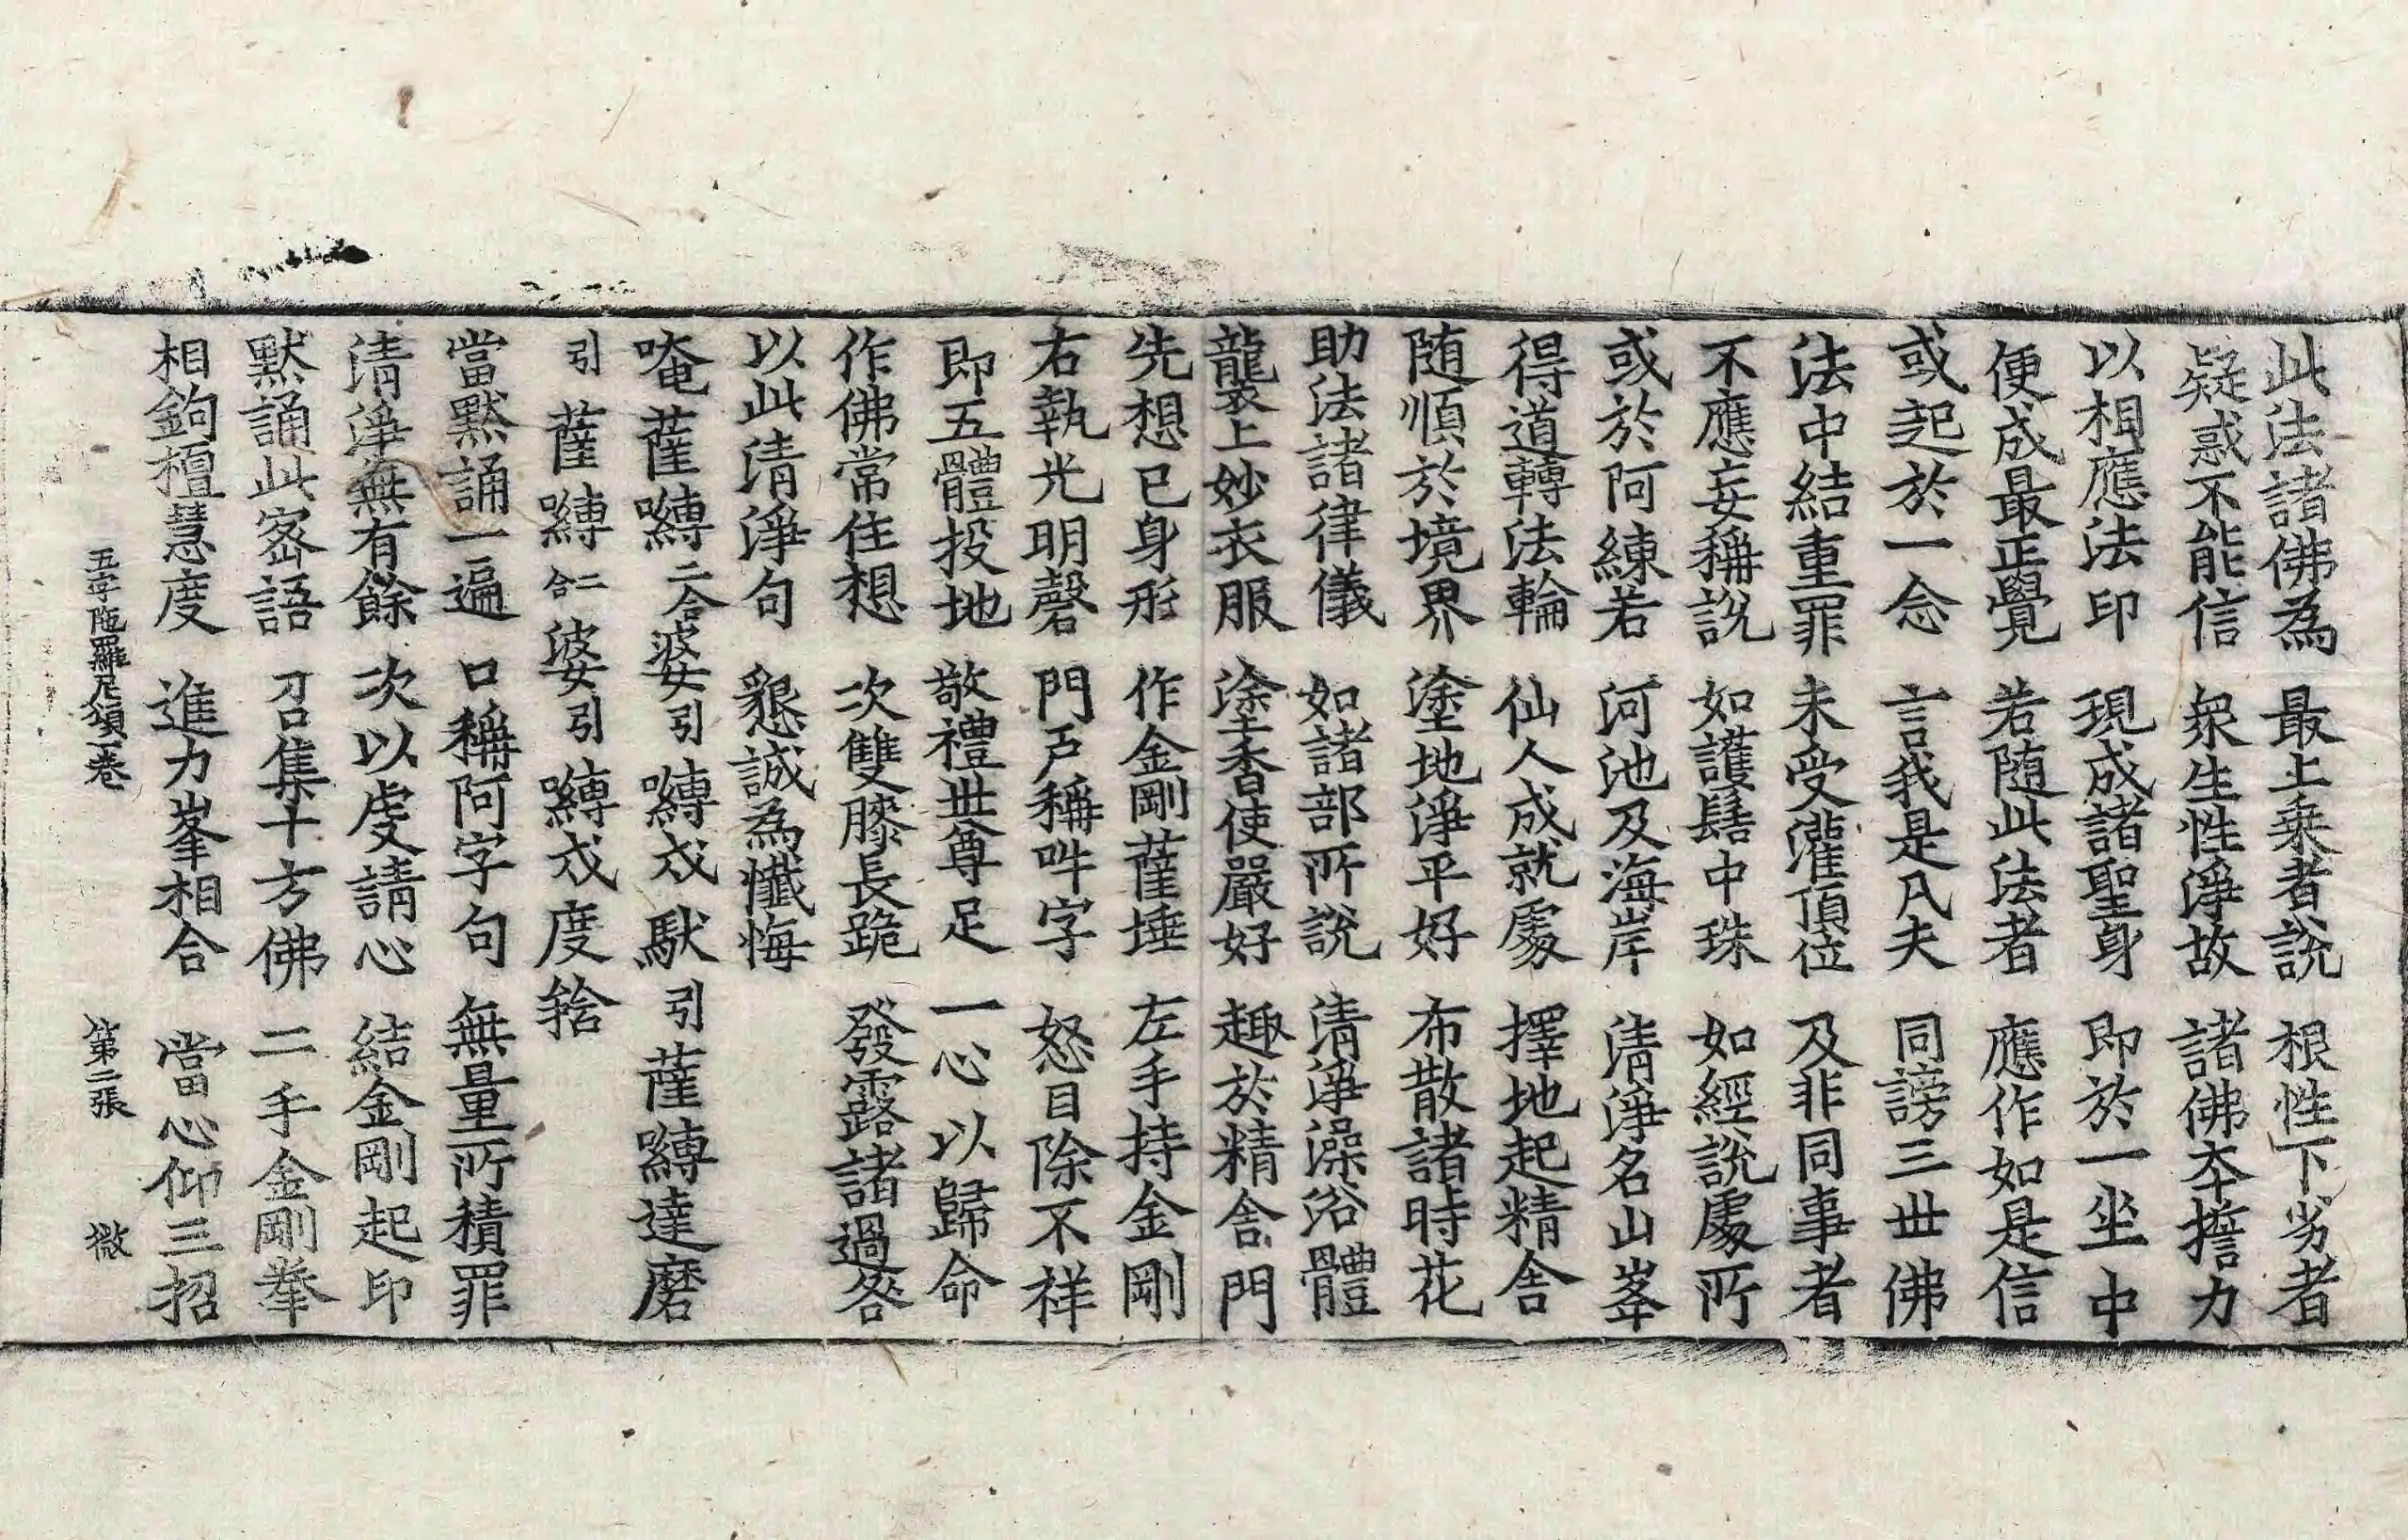 此法諸佛為 最上乗者說 根性下劣者
疑惑不能信 衆生性淨故 諸佛夲擔力
以相應法印 現成諸聖身 即於一坐中
便成最正覺 若随此法者 應作如是信
或起於一念 言我是凡夫 同謗三世佛
法中結重罪 未受灌頂位 及非同事者
不應妄稱說 如護髻中珠 如經說處所
或於阿練若 河池及海岸 清淨名山峯
得道轉法輪 仙人成就處 擇地起精舍
随順於境界 塗地淨平好 布散諸時花
助法諸律儀 如諸部所說 清淨澡浴體
襲上妙衣服 塗香使嚴好 趣於精舍門
先想己身形 作金剛薩埵 左手持金剛
右執光明磬 門戶稱吽字 怒目除不祥
即五體投地 敬禮世尊足 一心以歸命
作佛常住想 次雙膝長跪 發露諸過咎
以此清淨句 懇誠為懺悔
唵薩嚩二合婆引嚩戍馱引薩嚩達磨
引薩嚩二合婆引嚩戍度𨍏
當默誦一遍 口稱阿字句 無量所積罪
清淨無有餘 次以虔請心 結金剛起印
默誦此密語 召集十方佛 二手金剛拳
相鉤檀慧度 進力峯相合 當心仰三招
五字陁羅尼頌一卷 第二張 㣲